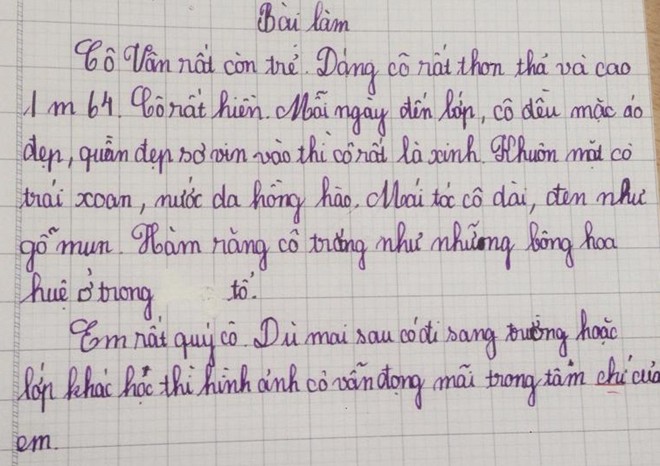 Bài làm
Cô Vân rất còn trẻ. Dáng cô rất thon thả và cao
1 m 64. Cô rất hiền. Mỗi ngày đến lớp, cô đều mặc áo
đẹp, quần đẹp sơ vin vào thì cô rất là xinh. Khuôn mặt cô
trái xoan, nước da hồng hào. Mái tóc cô dài, đen như
gỗ mun. Hàm răng cô trắng như những bông hoa
huệ ở trong tố.
Em rất quý cô. Dù mai sau có đi sang trường hoặc
lớp khác học thì hình ảnh cô vẫn đọng mãi trong tâm chí của
em.